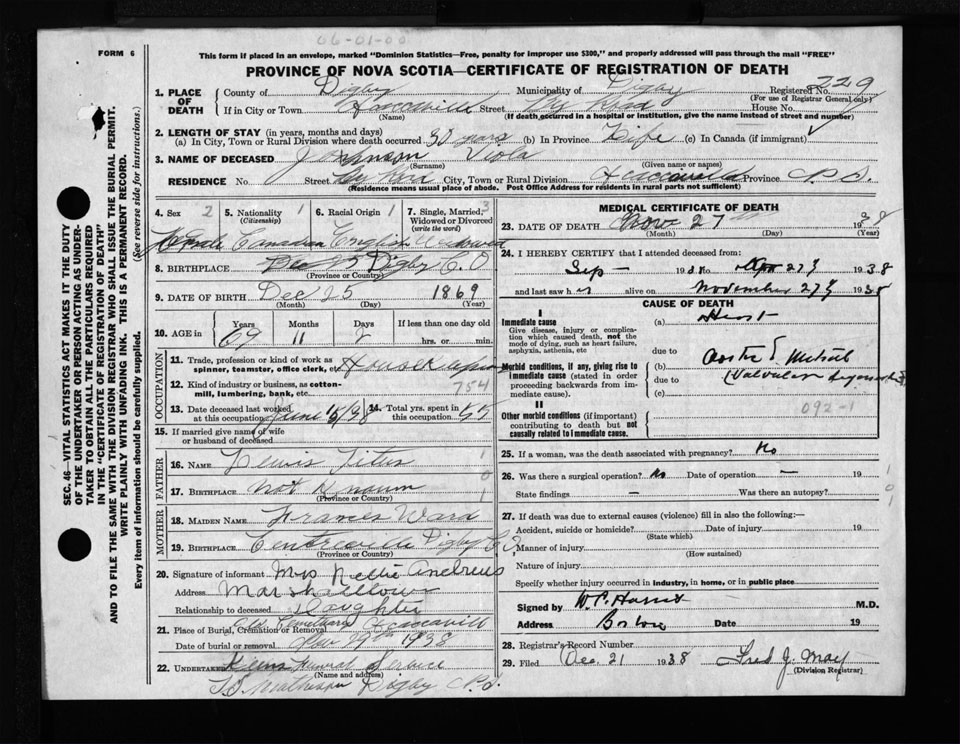 06-01-00
FORM 6
This form if placed in an envelope, marked "Dominion Statistics—Free, penalty for improper use $300," and properly addressed will pass through the mail "FREE"
PROVINCE OF NOVA SCOTIA—CERTIFICATE OF REGISTRATION OF DEATH
1. PLACE OF DEATH
County of Digby Municipality of Digby Registered No. 229
(For use of Registrar General only)
If in City or Town Street House No.
(Name) (If death occurred in a hospital or institution, give the name instead of street and number)
2. LENGTH OF STAY (in years, months and days)
(a) In City, Town or Rural Division where death occurred 30 years (b) In Province Life (c) In Canada (if immigrant)
3. NAME OF DECEASED Johnson Viola
(Surname) (Given name or names)
RESIDENCE No. Street City, Town or Rural Division Province
(Residence means usual place of abode. Post Office Address for residents in rural parts not sufficient)
4. Sex 2
5. Nationality 1
(Citizenship)
6. Racial Origin 1
7. Single, Married, Widowed or Divorced 3
(write the word)
Female Canadian English Widowed
8. BIRTHPLACE Digby Co
(Province or Country)
9. DATE OF BIRTH Dec 25 1869
(Month) (Day) (Year)
10. AGE in Years Months Days If less than one day old
69 11 2 hrs. or min.
OCCUPATION
11. Trade, profession or kind of work as spinner, teamster, office clerk, etc. Housekeeper
12. Kind of industry or business, as cotton-mill, lumbering, bank, etc. 754
13. Date deceased last worked at this occupation June
14. Total yrs. spent in this occupation
15. If married give name of wife or husband of deceased
FATHER
16. NAME Lewis Titus
17. BIRTHPLACE not Known
(Province or Country)
MOTHER
18. MAIDEN NAME Frances Ward
19. BIRTHPLACE Centreville Digby Co
(Province or Country)
20. Signature of informant Mrs Nellie Andrews
Address Marshalltown
Relationship to deceased Daughter
21. Place of Burial, Cremation or Removal Old Cemetary
Date of burial or removal Nov 29th 1938
22. Undertaker Funeral Service
(Name and address)
Digby
MEDICAL CERTIFICATE OF DEATH
23. DATE OF DEATH Nov 27th 1938
(Month) (Day) (Year)
24. I HEREBY CERTIFY that I attended deceased from:
Sep - 193 to 27th 1938
and last saw her alive on November 27th 1938
CAUSE OF DEATH
I
Immediate cause (a) Heart
Give disease, injury or complication which caused death, not the mode of dying, such as heart failure, asphyxia, asthenia, etc
due to
Morbid conditions, if any, giving rise to immediate cause (stated in order proceeding backwards from immediate cause). (b)
due to
Valvular
(c)
092-1
II
Other morbid conditions (if important) contributing to death but not causally related to immediate cause.
25. If a woman, was the death associated with pregnancy? No
26. Was there a surgical operation? No Date of operation — 19
State findings — Was there an autopsy?
27. If death was due to external causes (violence) fill in also the following:—
Accident, suicide or homicide? Date of injury 19
(State which)
Manner of injury
(How sustained)
Nature of injury
Specify whether injury occurred in industry, in home, or in public place
Signed by M.D.
Address Date 19
28. Registrar's Record Number
29. Filed Dec. 21 1938 Fred J. May
(Division Registrar)
1
0
1
SEC. 46—VITAL STATISTICS ACT MAKES IT THE DUTY
OF THE UNDERTAKER OR PERSON ACTING AS UNDER-
TAKER TO OBTAIN ALL THE PARTICULARS REQUIRED
IN THE "CERTIFICATE OF REGISTRATION OF DEATH"
AND TO FILE THE SAME WITH THE DIVISION REGISTRAR WHO SHALL ISSUE THE BURIAL PERMIT.
WRITE PLAINLY WITH UNFADING INK. THIS IS A PERMANENT RECORD.
Every item of information should be carefully supplied. (See reverse side for instructions.)